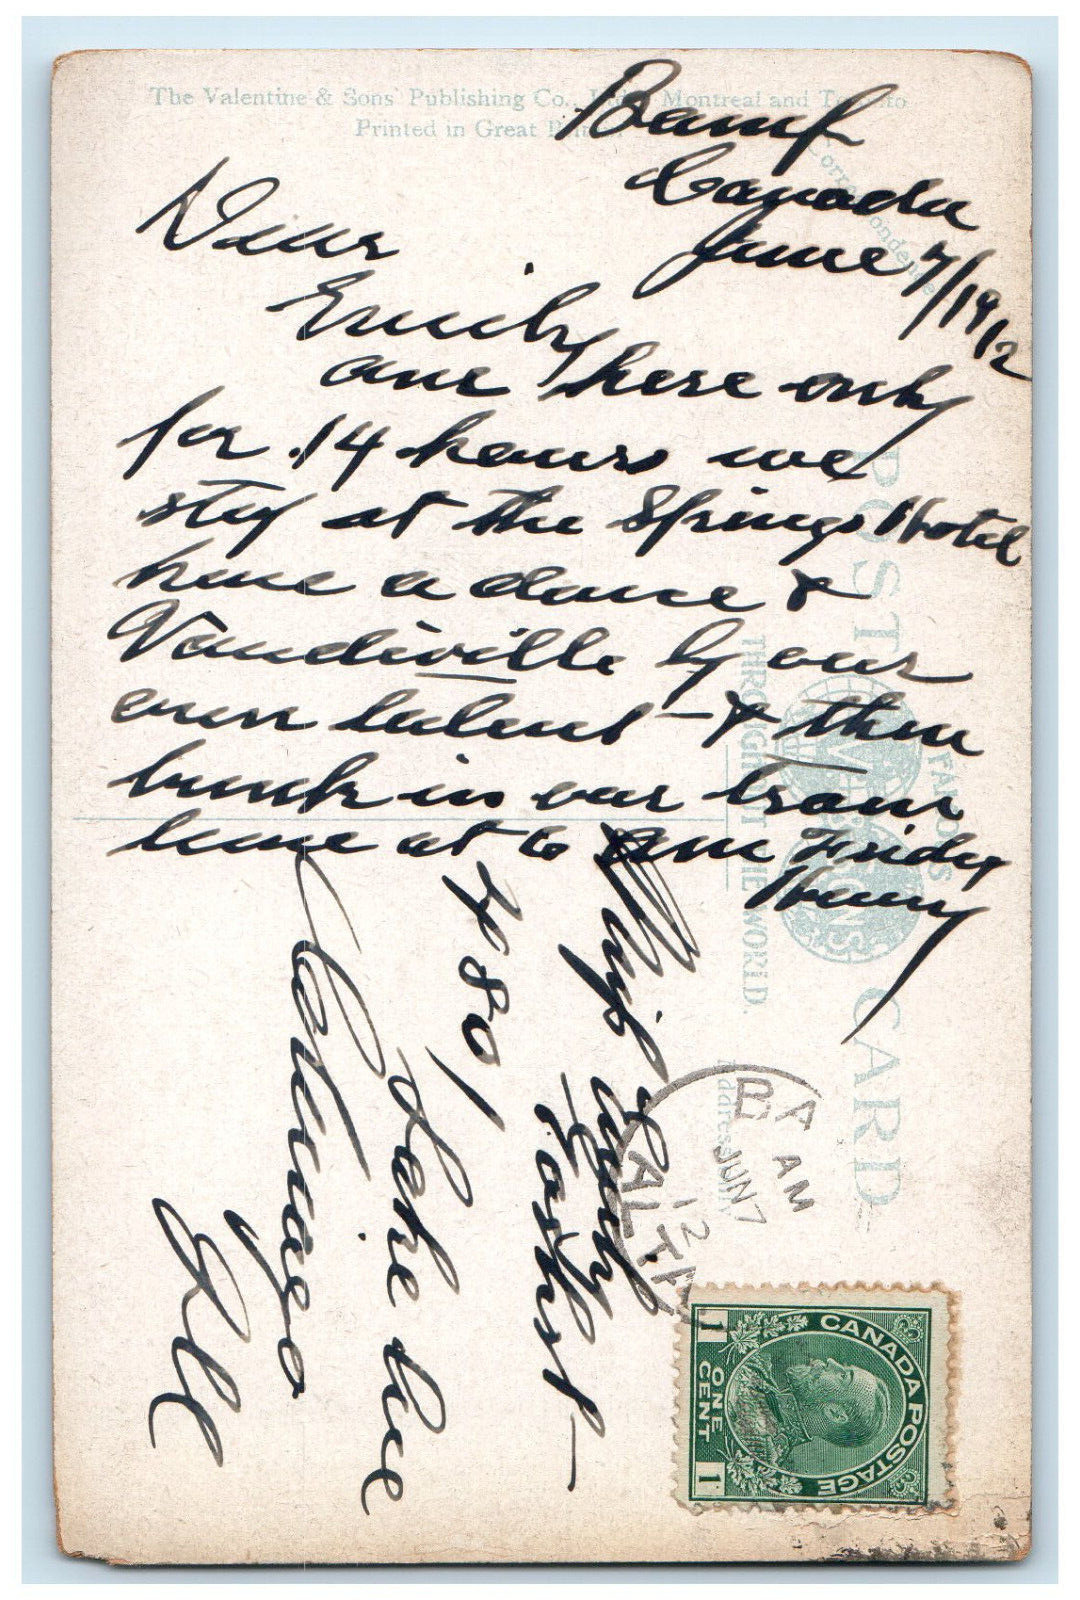 The Valentine & Sons' Publishing Co., Ltd., Montreal and Toronto
Printed in Great Britain.
Correspondence
Bamf
Canada
June 7/1912
Dear
Emily
are here only
for 14 hours we
stop at the Springs Hotel
have a dance &
Vaudiville by our
own talent - & then
bunk in our train
leave at 6 am Friday
Henry
POST CARD
FAMOUS
THROUGHOUT THE WORLD.
VALENTINE & SONS
Address
Miss Emily
4801
Lake Ave
Chicago
Ill
BA
AM
JUN 7
12
ALTA
CANADA POSTAGE
1 ONE CENT 1